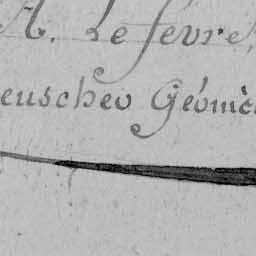 A. Lefevre,
euscheo Géomè